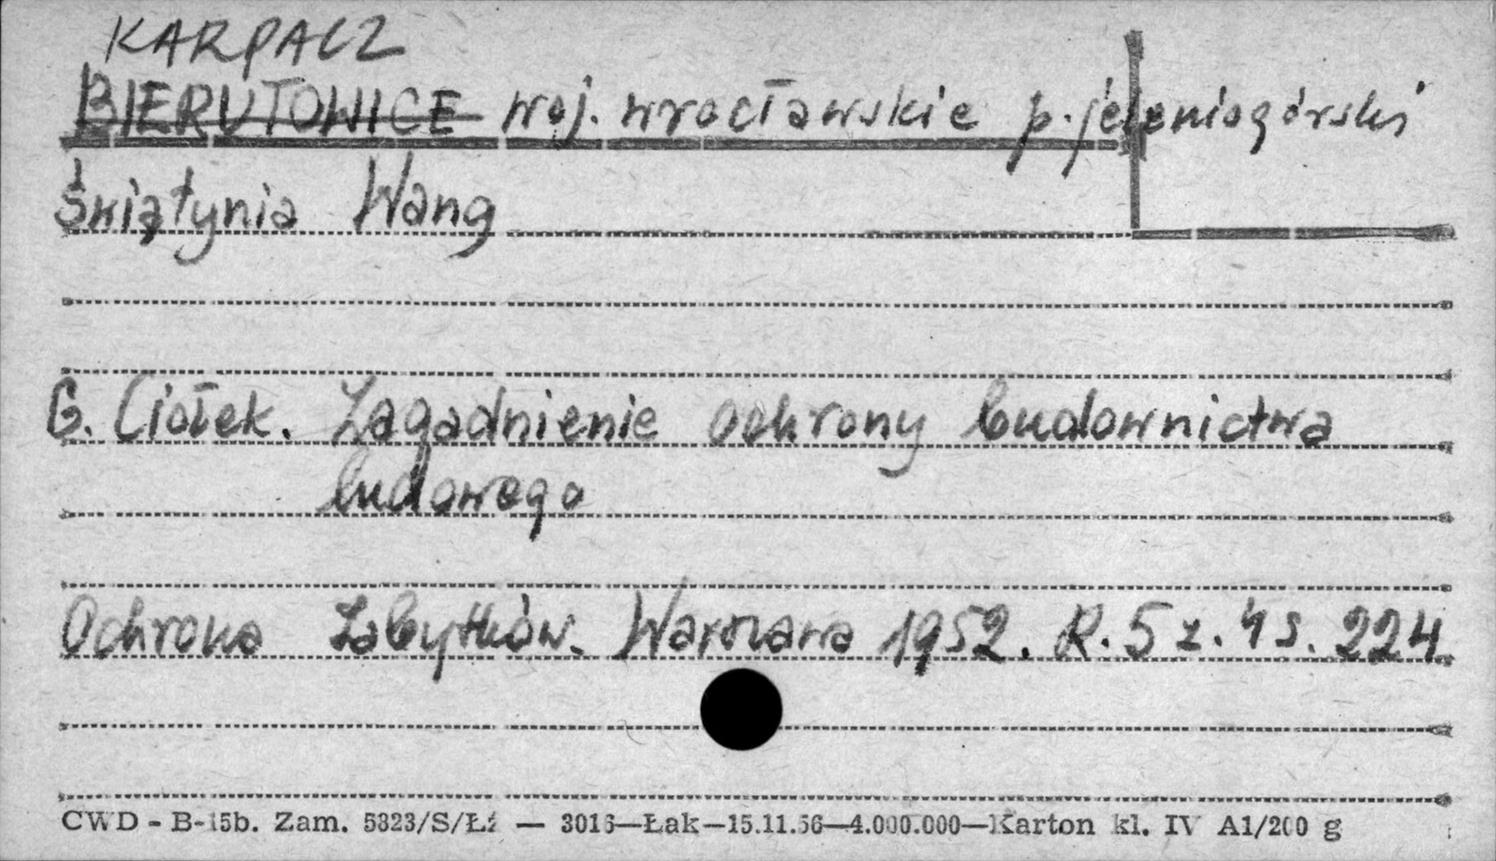 KARPACZ
BIERUTOWICE woj. wrocławskie p. jeleniogórski
Świątynia Wang
G. Ciołek. Zagadnienie ochrony budownictwa
ludowego
Ochrona Zabytków. Warszawa 1952. R. 5 z. 4 s. 224
CWD - B-15b. Zam. 5823/S/Łź — 3016—Łak—15.11.56—4.000.000—Karton kl. IV A1/200 g